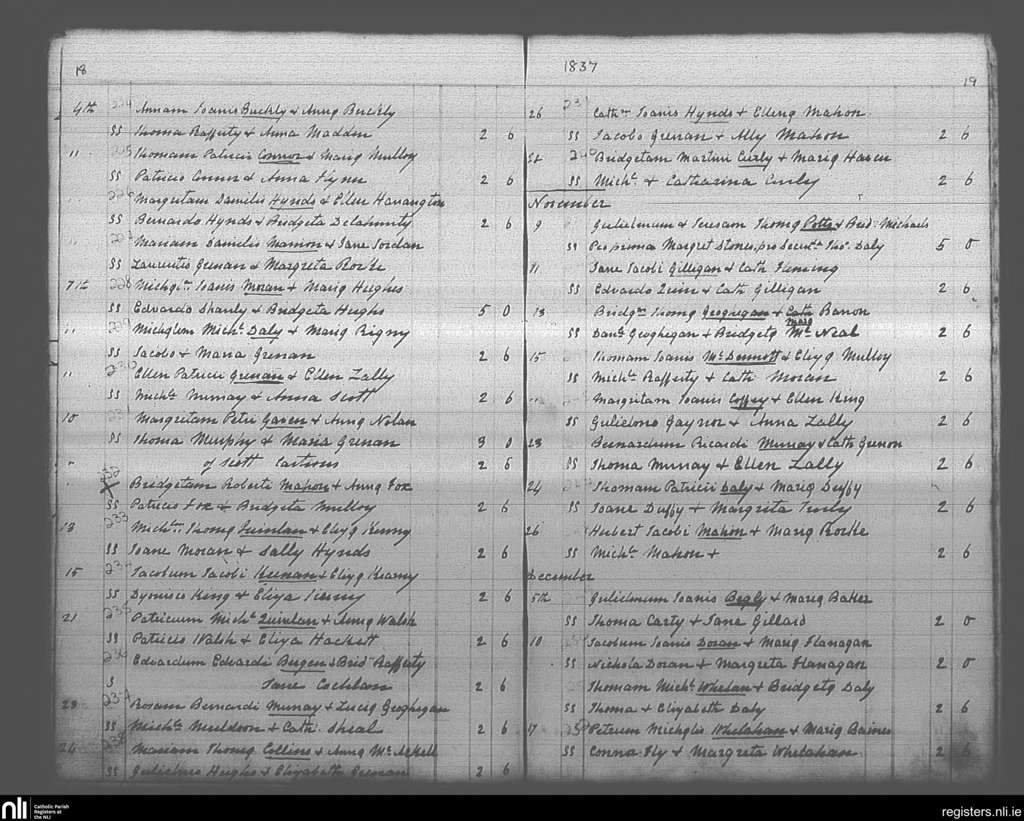 18
4th 224 Annam Joanis Buckly & Annę Buckly
SS Thoma Rafferty & Anna Madden 2 6
11 225 Thomam Patricii Connor & Marię Mulloy
SS Patricio Connor & Anna Flynn 2 6
" 226 Margritam Danielis Hynds & Ellen Harrington
SS Bernardo Hynds & Bridgeta Delahunty 2 6
" 227 Mariam Danielis Mannion & Jane Jordan
SS Laurentio Grenan & Margreta Rorke
7th 228 Joanis Moran & Marię Hughes
SS Edvardo Shanly & Bridgeta Hughs 5 0
" Michęlem Michls Daly & Marię Rigny
SS Jacobo & Maria Grenan 2 6
" 230 Ellen Patricii Grenan & Ellen Lally
SS Michle Murray & Anna Scott 2 6
10 231 Margretam Petri Gaven & Annę Nolan
SS Thoma Murphy & Maria Grenan 3 0
" of Scott Cartrons 2 6
Bridgetam Roberti Mahon & Annę Fox
SS Patricio Fox & Bridgeta Mulloy 2 6
13 233 Thomę Quinlan & Elizę Kenny
SS Joane Moran & Sally Hynds 2 6
15 234 Jacobum Jacobi Keenan & Elizę Kearny
SS Dyonisio King & Eliza Kenny 2 6
21 235 Patricium Michls Quinlan & Annę Walsh
SS Patricio Walsh & Eliza Hackett 2 6
Edvardum Edvardi Bergen & Brid Rafferty
S Jane Cochlan 2 6
23 Rosam Bernardi Murray & Lucię Geoghegan
SS Michle Muldoon & Cath Sheal 2 6
24 238 Mariam Thomę Collins & Annę
SS Gulielmo Hughes & Elizabeth Grenan 2 6
1837
19
26 Joanis Hynds & Ellenę Mahon
SS Jacobo Grenan & Ally Mahon 2 6
Bridgetam Martini Curly & Marię
SS Michle & Catharina Curly 2 6
November
9 Gulielmum & Teresam Thomę Potts & Brid Michaels
SS Pro prima Margret Stones, pro Thos Daly 5 0
11 Jane Jacobi Gilligan & Cath Fleming
SS Edvardo Quin & Cath Gilligan 2 6
13 Thomę Geoghegan & Cath Banon
Marg
SS Geoghegan & Bridgetę McNeal 2 6
15 Thomam Joanis McDermott & Elizę Mulloy
SS Michle Rafferty & Cath Moran 2 6
" Margritam Joanis Coffey & Ellen King
SS Gulielmo Gaynor & Anna Lally 2 6
23 Bernardum Ricardi Murray & Cath Grenon
SS Thoma Murray & Ellen Lally 2 6
24 Thomam Patricii Daly & Marię Duffy
SS Joane Duffy & Margrita 2 6
26 Hubert Jacobi Mahon & Marię Rorke
SS Michle Mahon + 2 6
December
5th Gulielmum Joanis Begly & Marię Baker
SS Thoma Carty & Jane Gillard 2 0
10 Jacobum Joanis Doran & Marię Flanagan
SS Nichola Doran & Margreta Flanagan 2 0
Thomam Michls Whelan & Bridgetę Daly
SS Thoma & Elizabeth Daly 2 6
17 Petrum Michęlis Whelahan & Marię Baines
SS Connor Fly & Margreta Whelahan 2 6
nli Catholic Parish
Registers at
the NLI
registers.nli.ie